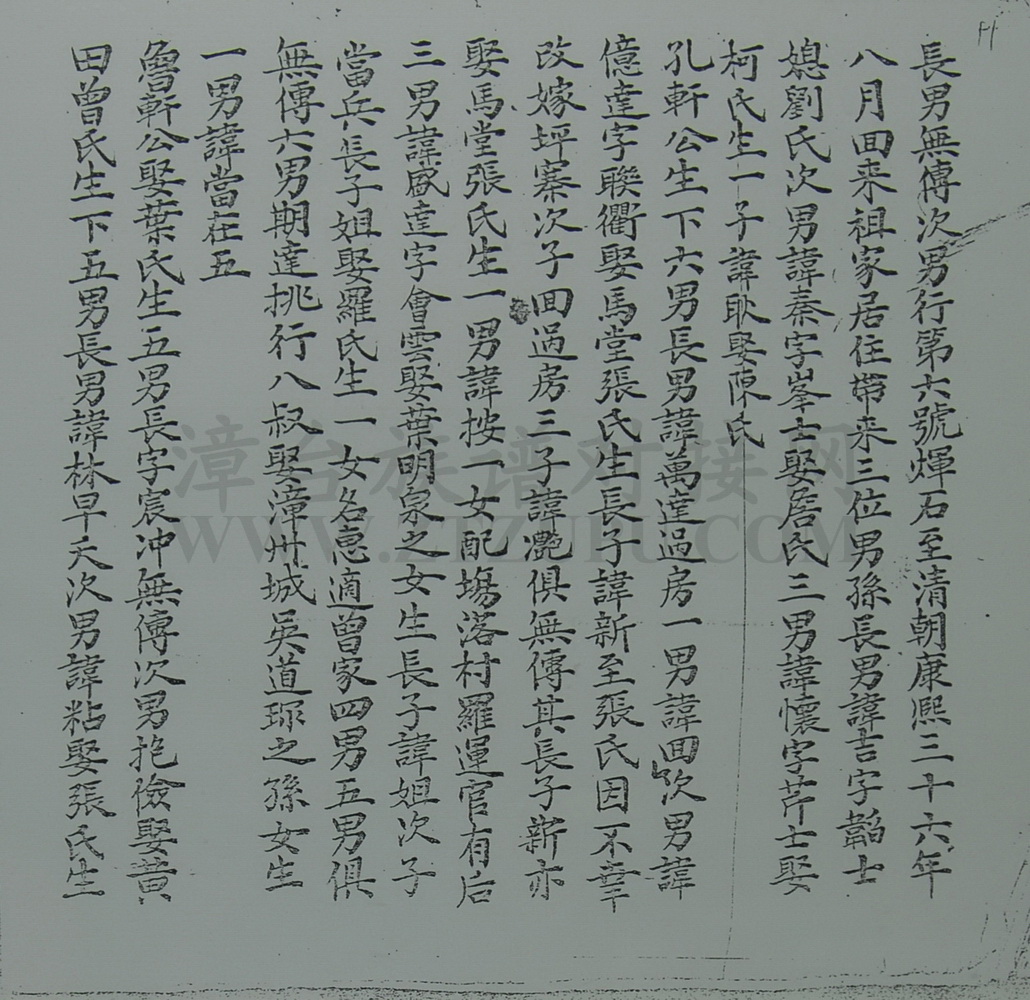 長男無傳次男行第六號煇石至清朝康熙三十六年
八月回来祖家居住帶来三位男孫長男諱吉字韜士
媳劉氏次男諱秦字峯士娶居氏三男諱懷字芹士娶
柯氏生一子諱耿娶陳氏
孔軒公生下六男長男諱萬達過房一男諱回次男諱
億達字聯衢娶馬堂張氏生長子諱新至張氏因不幸
改嫁坪寨次子回過房三子諱灔俱無傳其長子新亦
娶馬堂張氏生一男諱按一女配塲落村羅運官有后
三男諱盛達字會雲娶葉明泉之女生長子諱姐次子
當兵長子姐娶羅氏生一女名惠適曾家四男五男俱
無傳六男期達挑行八叔娶漳州城吳道珎之孫女生
一男諱當在五
魯軒公娶葉氏生五男長字宸冲無傳次男抱儉娶黄
田曾氏生下五男長男諱林早夭次男諱粘娶張氏生
漳台族谱对接网
WWW.ZTZUPU.COM